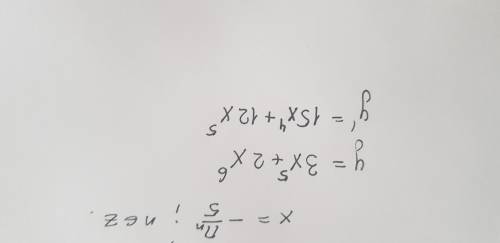 x = - Пn/5 ; n ∈ z.
y = 3x⁵ + 2x⁶
y' = 15x⁴ + 12x⁵